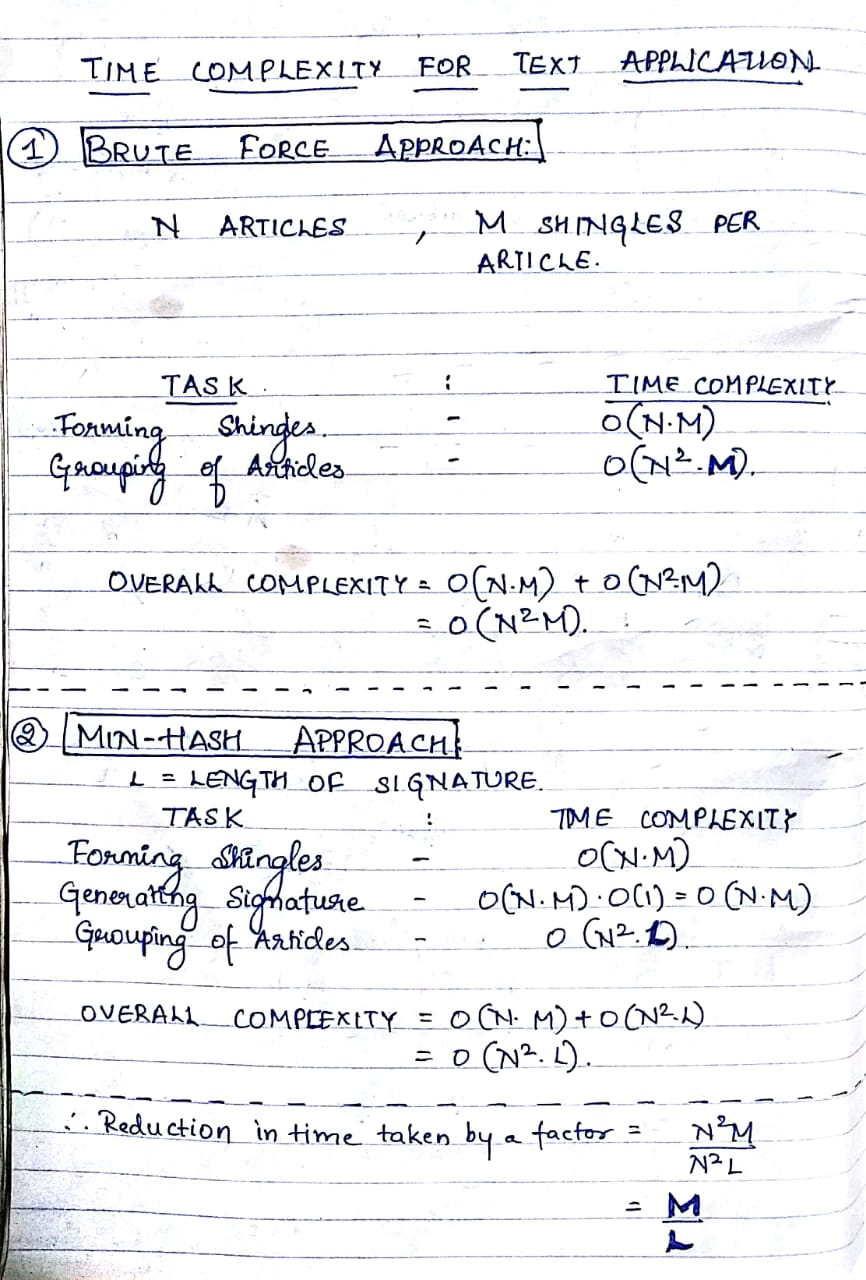 TIME COMPLEXITY FOR TEXT APPLICATION
① BRUTE FORCE APPROACH:
N ARTICLES , M SHINGLES PER
ARTICLE.
TASK : TIME COMPLEXITY
Forming Shingles. - O(N.M)
Grouping of Articles - O(N².M).
OVERALL COMPLEXITY = O(N.M) + O(N².M)
= O(N²M).
② MIN-HASH APPROACH:
L = LENGTH OF SIGNATURE.
TASK : TIME COMPLEXITY
Forming Shingles - O(N.M)
Generating Signature - O(N.M).O(1) = O(N.M)
Grouping of Articles - O(N².L).
OVERALL COMPLEXITY = O(N.M) + O(N².L)
= O(N².L).
∴ Reduction in time taken by a factor = N²M
N²L
= M
L